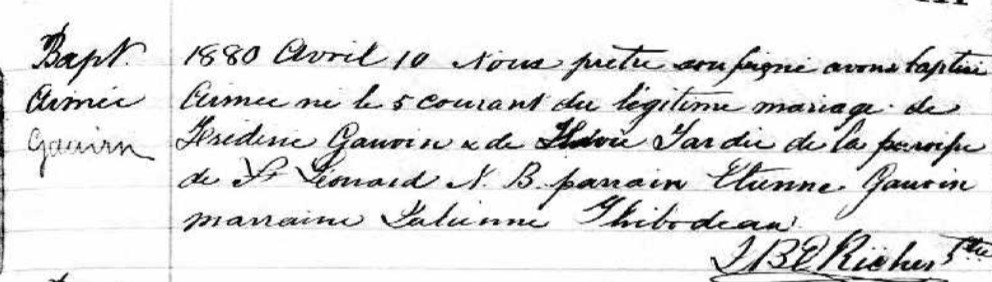 Bapt.
Aimée
Gauvin
1880 Avril 10 Nous prêtre soussigné avons baptisé
Aimée né le 5 courant du légitime mariage de
Frédéric Gauvin & de Tardie de la paroisse
de St Léonard N. B. parrain Etienne Gauvin
marraine Thibodeau
Richer Ptre